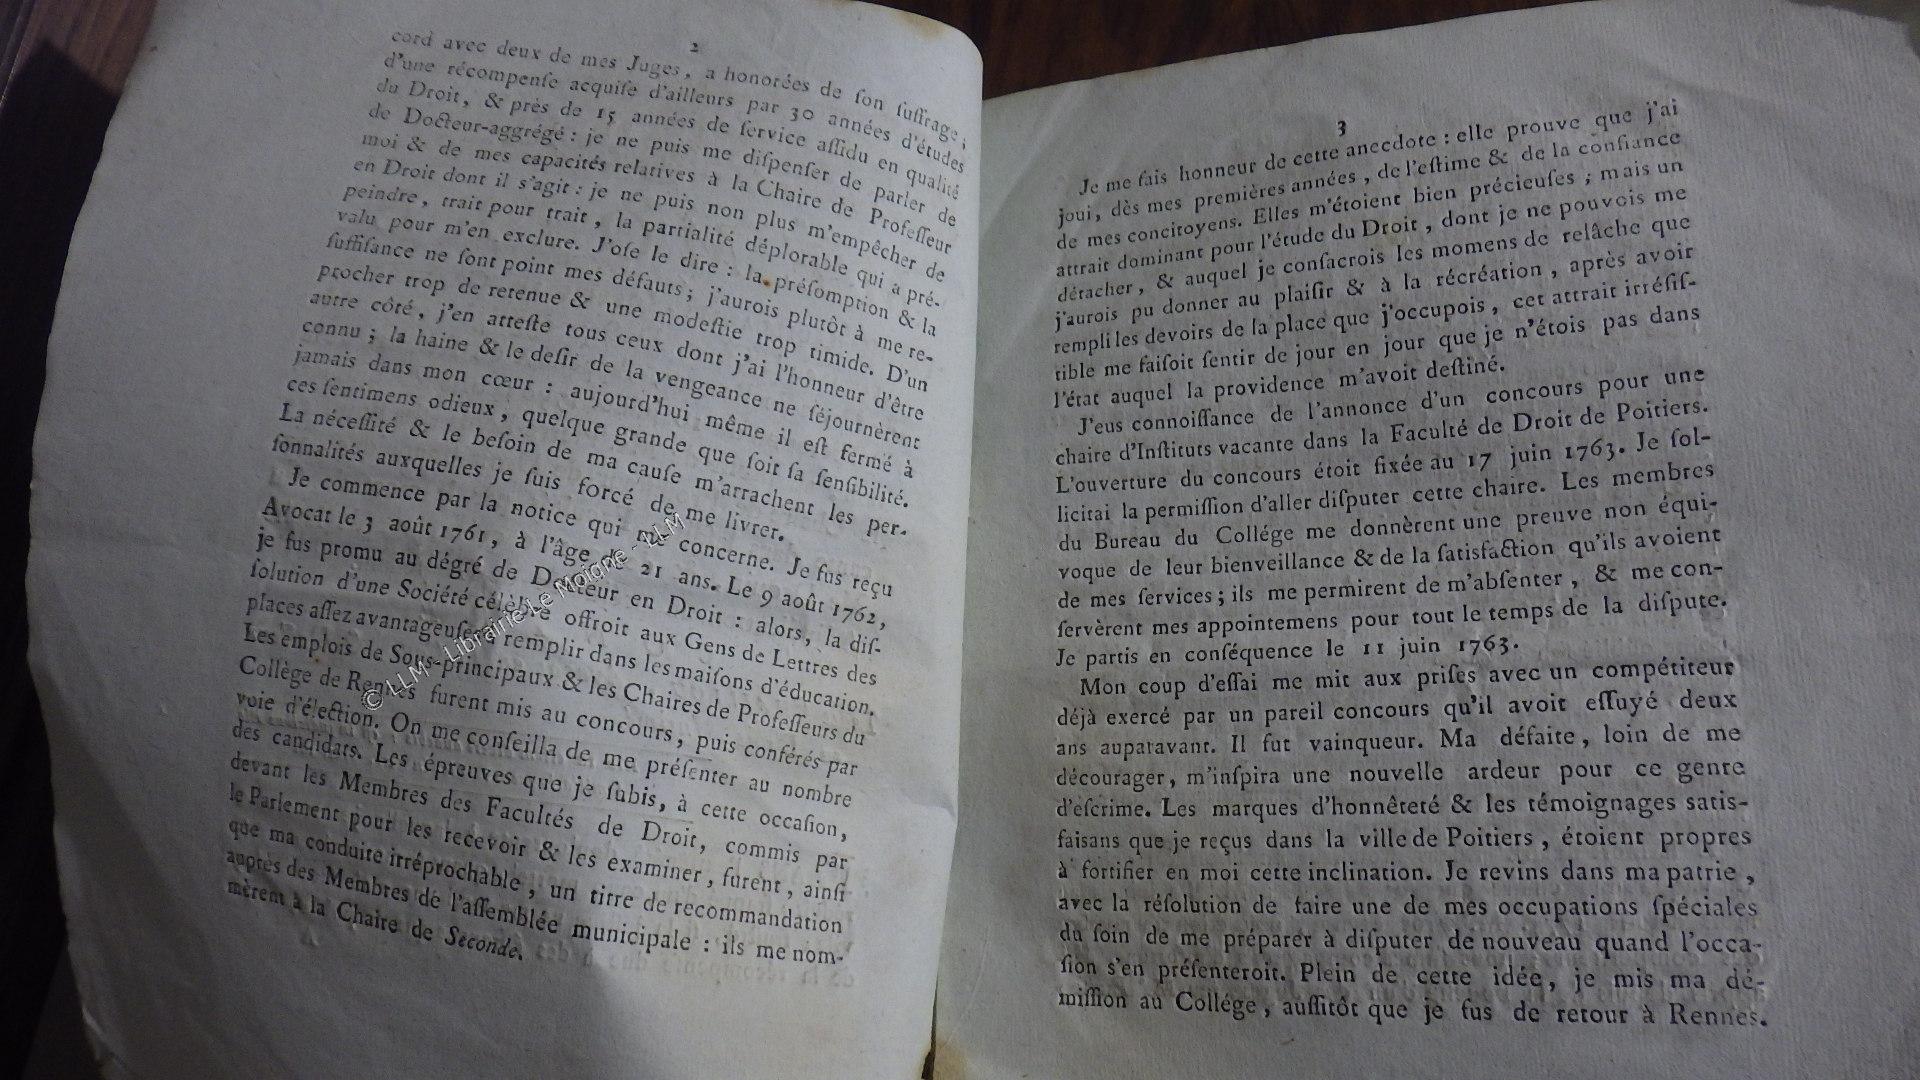 2
cord avec deux de mes Juges, a honorées de ſon ſuffrage,
d'une récompenſe acquiſe d'ailleurs par 30 années d'études
du Droit, & près de 15 années de ſervice aſſidu en qualité
de Docteur-aggrégé : je ne puis me diſpenſer de parler de
moi & de mes capacités relatives à la Chaire de Profeſſeur
en Droit dont il s'agit : je ne puis non plus m'empêcher de
peindre, trait pour trait, la partialité déplorable qui a pré-
valu pour m'en exclure. J'oſe le dire : la préſomption & la
ſuffiſance ne ſont point mes défauts; j'aurois plutôt à me re-
procher trop de retenue & une modeſtie trop timide. D'un
autre côté, j'en atteſte tous ceux dont j'ai l'honneur d'être
connu ; la haine & le deſir de la vengeance ne ſéjournèrent
jamais dans mon cœur : aujourd'hui même il eſt fermé à
ces ſentimens odieux, quelque grande que ſoit ſa ſenſibilité.
La néceſſité & le beſoin de ma cauſe m'arrachent les per-
ſonnalités auxquelles je ſuis forcé de me livrer.
Je commence par la notice qui me concerne. Je fus reçu
Avocat le 3 août 1761, à l'âge de 21 ans. Le 9 août 1762,
je fus promu au dégré de Docteur en Droit : alors, la diſ-
ſolution d'une Société célèbre offroit aux Gens de Lettres des
places aſſez avantageuſes à remplir dans les maiſons d'éducation.
Les emplois de Sous-principaux & les Chaires de Profeſſeurs du
Collège de Rennes furent mis au concours, puis conférés par
voie d'élection. On me conſeilla de me préſenter au nombre
des candidats. Les épreuves que je ſubis, à cette occaſion,
devant les Membres des Facultés de Droit, commis par
le Parlement pour les recevoir & les examiner, furent, ainſi
que ma conduite irréprochable, un titre de recommandation
auprès des Membres de l'aſſemblée municipale : ils me nom-
mèrent à la Chaire de Seconde.
© LLM - Librairie Le Moigne - LLM
3
Je me fais honneur de cette anecdote : elle prouve que j'ai
joui, dès mes premières années, de l'eſtime & de la confiance
de mes concitoyens. Elles m'étoient bien précieuſes ; mais un
attrait dominant pour l'étude du Droit, dont je ne pouvois me
détacher, & auquel je conſacrois les momens de relâche que
j'aurois pu donner au plaiſir & à la récréation, après avoir
rempli les devoirs de la place que j'occupois, cet attrait irréſiſ-
tible me faiſoit ſentir de jour en jour que je n'étois pas dans
l'état auquel la providence m'avoit deſtiné.
J'eus connoiſſance de l'annonce d'un concours pour une
chaire d'Inſtituts vacante dans la Faculté de Droit de Poitiers.
L'ouverture du concours étoit fixée au 17 juin 1763. Je ſol-
licitai la permiſſion d'aller diſputer cette chaire. Les membres
du Bureau du Collége me donnèrent une preuve non équi-
voque de leur bienveillance & de la ſatisfaction qu'ils avoient
de mes ſervices ; ils me permirent de m'abſenter, & me con-
ſervèrent mes appointemens pour tout le temps de la diſpute.
Je partis en conſéquence le 11 juin 1763.
Mon coup d'eſſai me mit aux priſes avec un compétiteur
déjà exercé par un pareil concours qu'il avoit eſſuyé deux
ans auparavant. Il fut vainqueur. Ma défaite, loin de me
décourager, m'inſpira une nouvelle ardeur pour ce genre
d'eſcrime. Les marques d'honnêteté & les témoignages satis-
faisans que je reçus dans la ville de Poitiers, étoient propres
à fortifier en moi cette inclination. Je revins dans ma patrie,
avec la réſolution de faire une de mes occupations ſpéciales
du ſoin de me préparer à diſputer de nouveau quand l'occa-
ſion s'en préſenteroit. Plein de cette idée, je mis ma dé-
miſſion au Collége, auſſitôt que je fus de retour à Rennes.